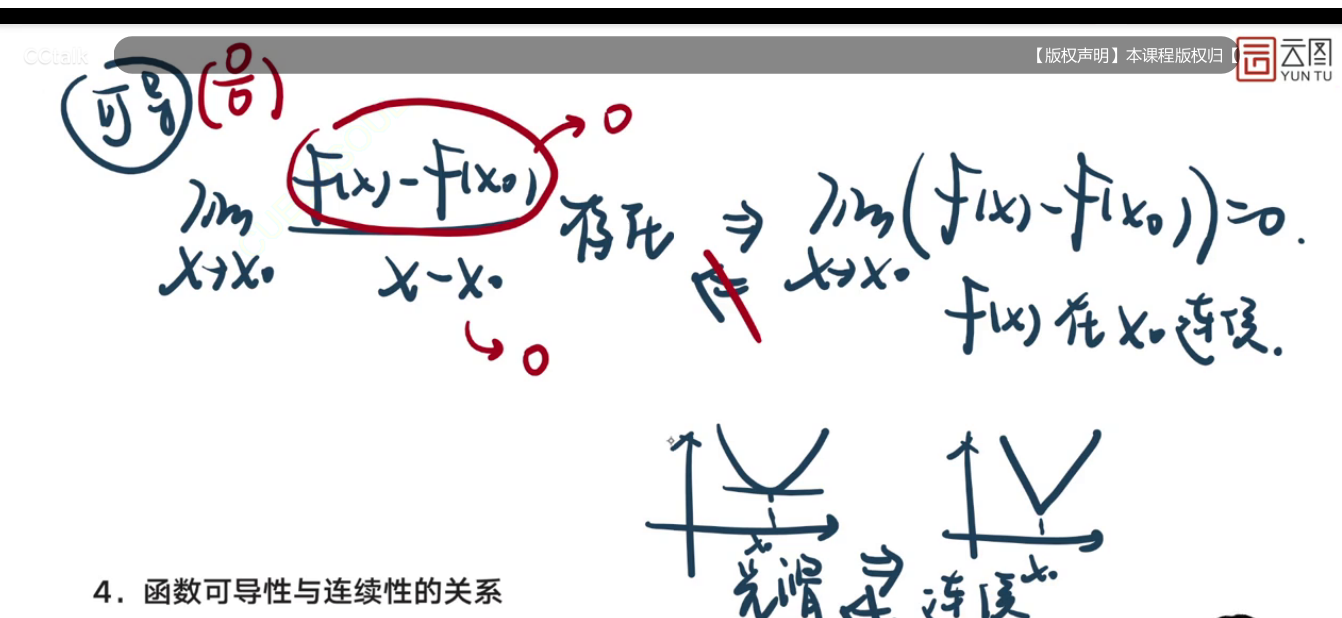 CCtalk
【版权声明】本课程版权归【
云图
YUN TU
可导 (0/0)
lim x→x₀ (f(x)-f(x₀))/(x-x₀) 存在 ⇒ lim x→x₀ (f(x)-f(x₀))=0.
→0
⇐
f(x)在x₀连续.
→0
x₀
x₀
光滑 ⇒ 连续
4. 函数可导性与连续性的关系